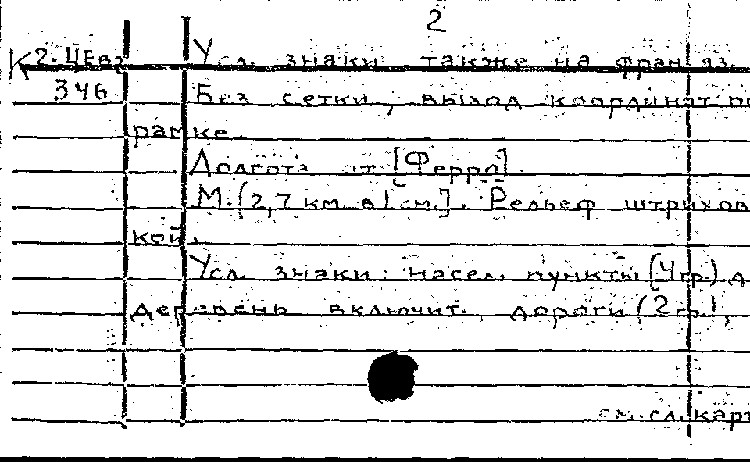 2
К 2-ЦЕв Усл. знаки также на фран. яз.
346 Без сетки, выход координат по
рамке.
Долгота от [Ферро].
М. [2,7 км в 1 см.]. Рельеф штрихов
кой.
Усл. знаки: насел. пункты (4 гр.) д
деревень включит., дороги (2 гр.),
см. сл. карт